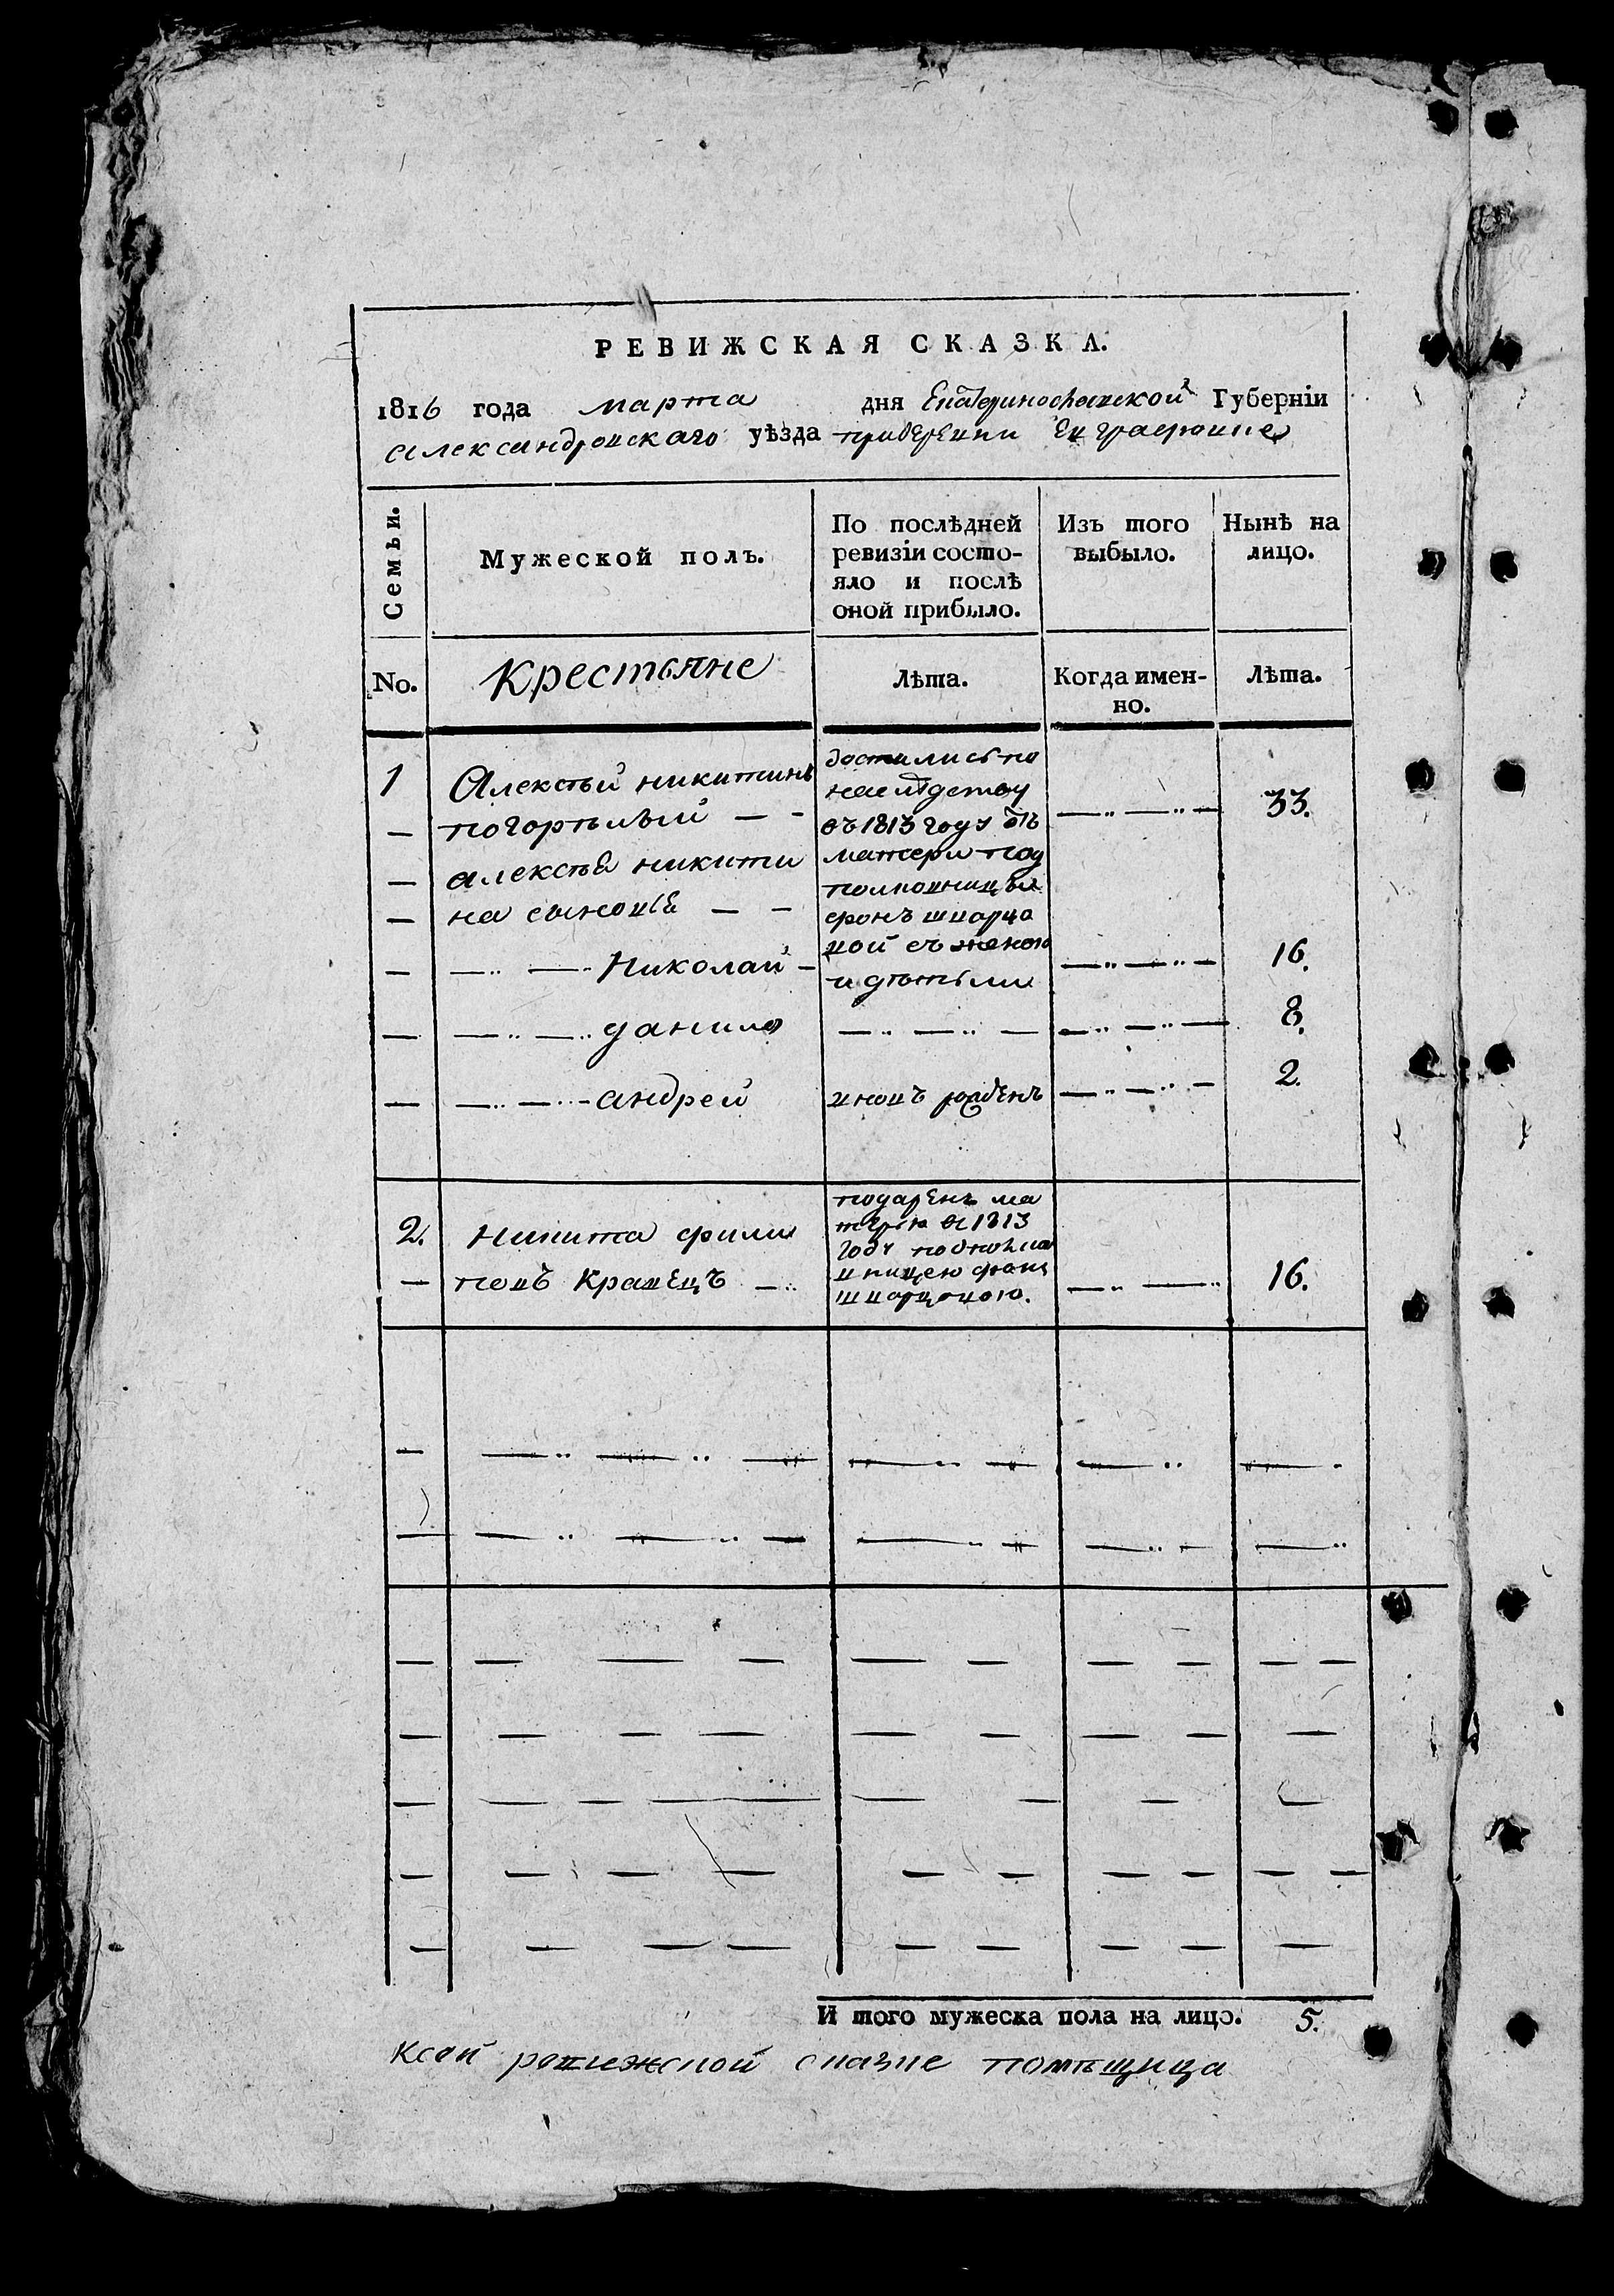 РЕВИЖСКАЯ СКАЗКА.
1816 года марта дня Екатеринославской Губерніи
александровскаго уѣзда придеревни Евграфовне
Семьи.
Мужеской полъ.
По послѣдней ревизіи состо-
яло и послѣ
оной прибыло.
Изъ того выбыло.
Нынѣ на лицо.
No.
Крестьяне
Лѣта.
Когда имен-
но.
Лѣта.
1 Алексѣй никитинъ
погорѣлый
алексѣя никити
на сыновья
Николай
данило
андрей
достались по
наслѣдству
въ 1813 году отъ
матери под
полковницы
фонъ шварцо
вой съ женою
и дѣтьми
вновъ рожденъ
33.
16.
8.
2.
2. Никита фили
повъ Кравецъ
подаренъ ма
терью въ 1813
году подполко
вницею фонъ
шварцовою.
16.
И того мужеска пола на лицо. 5.
Ксей ревижской сказке помѣщица